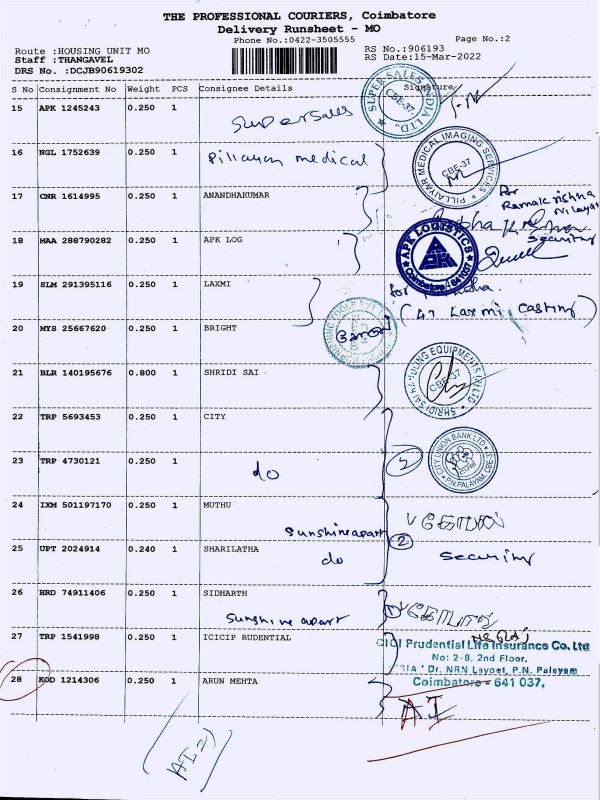 THE PROFESSIONAL COURIERS, Coimbatore
Delivery Runsheet - MO
Phone No.:0422-3505555
Page No.:2
Route :HOUSING UNIT MO
RS No.:906193
Staff :THANGAVEL
RS Date:15-Mar-2022
DRS No. :DCJB90619302
S No Consignment No Weight PCS Consignee Details Signature
15 APK 1245243 0.250 1
Supersales
SUPER SALES INDIA LTD.,
CBE-37.
16 NGL 1752639 0.250 1
Pillayar medical
PILLAIYAR MEDICAL IMAGING SERVICES
CBE-37
17 CNR 1614995 0.250 1 ANANDHAKUMAR
for
Ramakrishna
Nilayat
Security
18 MAA 288790282 0.250 1 APK LOG
APK LOGISTICS
APK
Coimbatore - 641037
19 SLM 291395116 0.250 1 LAXMI
for
(47 Laxmi Casting)
20 MYS 25667620 0.250 1 BRIGHT
21 BLR 140195676 0.800 1 SHRIDI SAI
SHRIDI SAI HANDLING EQUIPMENTS (I) LTD
CBE-37
22 TRP 5693453 0.250 1 CITY
CITY UNION BANK LTD
P.N.PALAYAM, CBE-37
23 TRP 4730121 0.250 1
do
2
24 IXM 501197170 0.250 1 MUTHU
Sunshine apart
25 UPT 2024914 0.240 1 SHARILATHA
do
2
Security
26 HRD 74911406 0.250 1 SIDHARTH
Sunshine apart
27 TRP 1541998 0.250 1 ICICIP RUDENTIAL
ICICI Prudential Life Insurance Co. Ltd
No: 2-8, 2nd Floor,
Dr. NRN Layout, P.N. Palayam
Coimbatore - 641 037.
28 KOD 1214306 0.250 1 ARUN MEHTA
AI